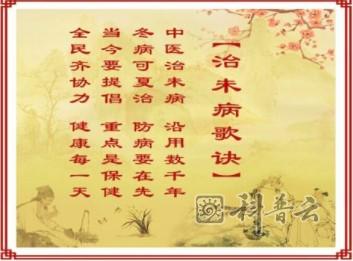 【治未病歌诀】
中医治未病 沿用数千年
冬病可夏治 防病要在先
当今要提倡 重点是保健
全民齐协力 健康每一天
科普云